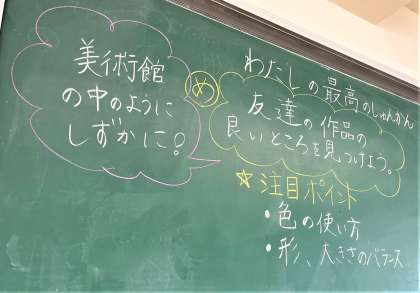 美術館
の中のように
しずかに?
わたしの最高のしゅんかん
め
友達の作品の
良いところを見つけよう。
☆注目ポイント
・色の使い方
・形、大きさのバランス